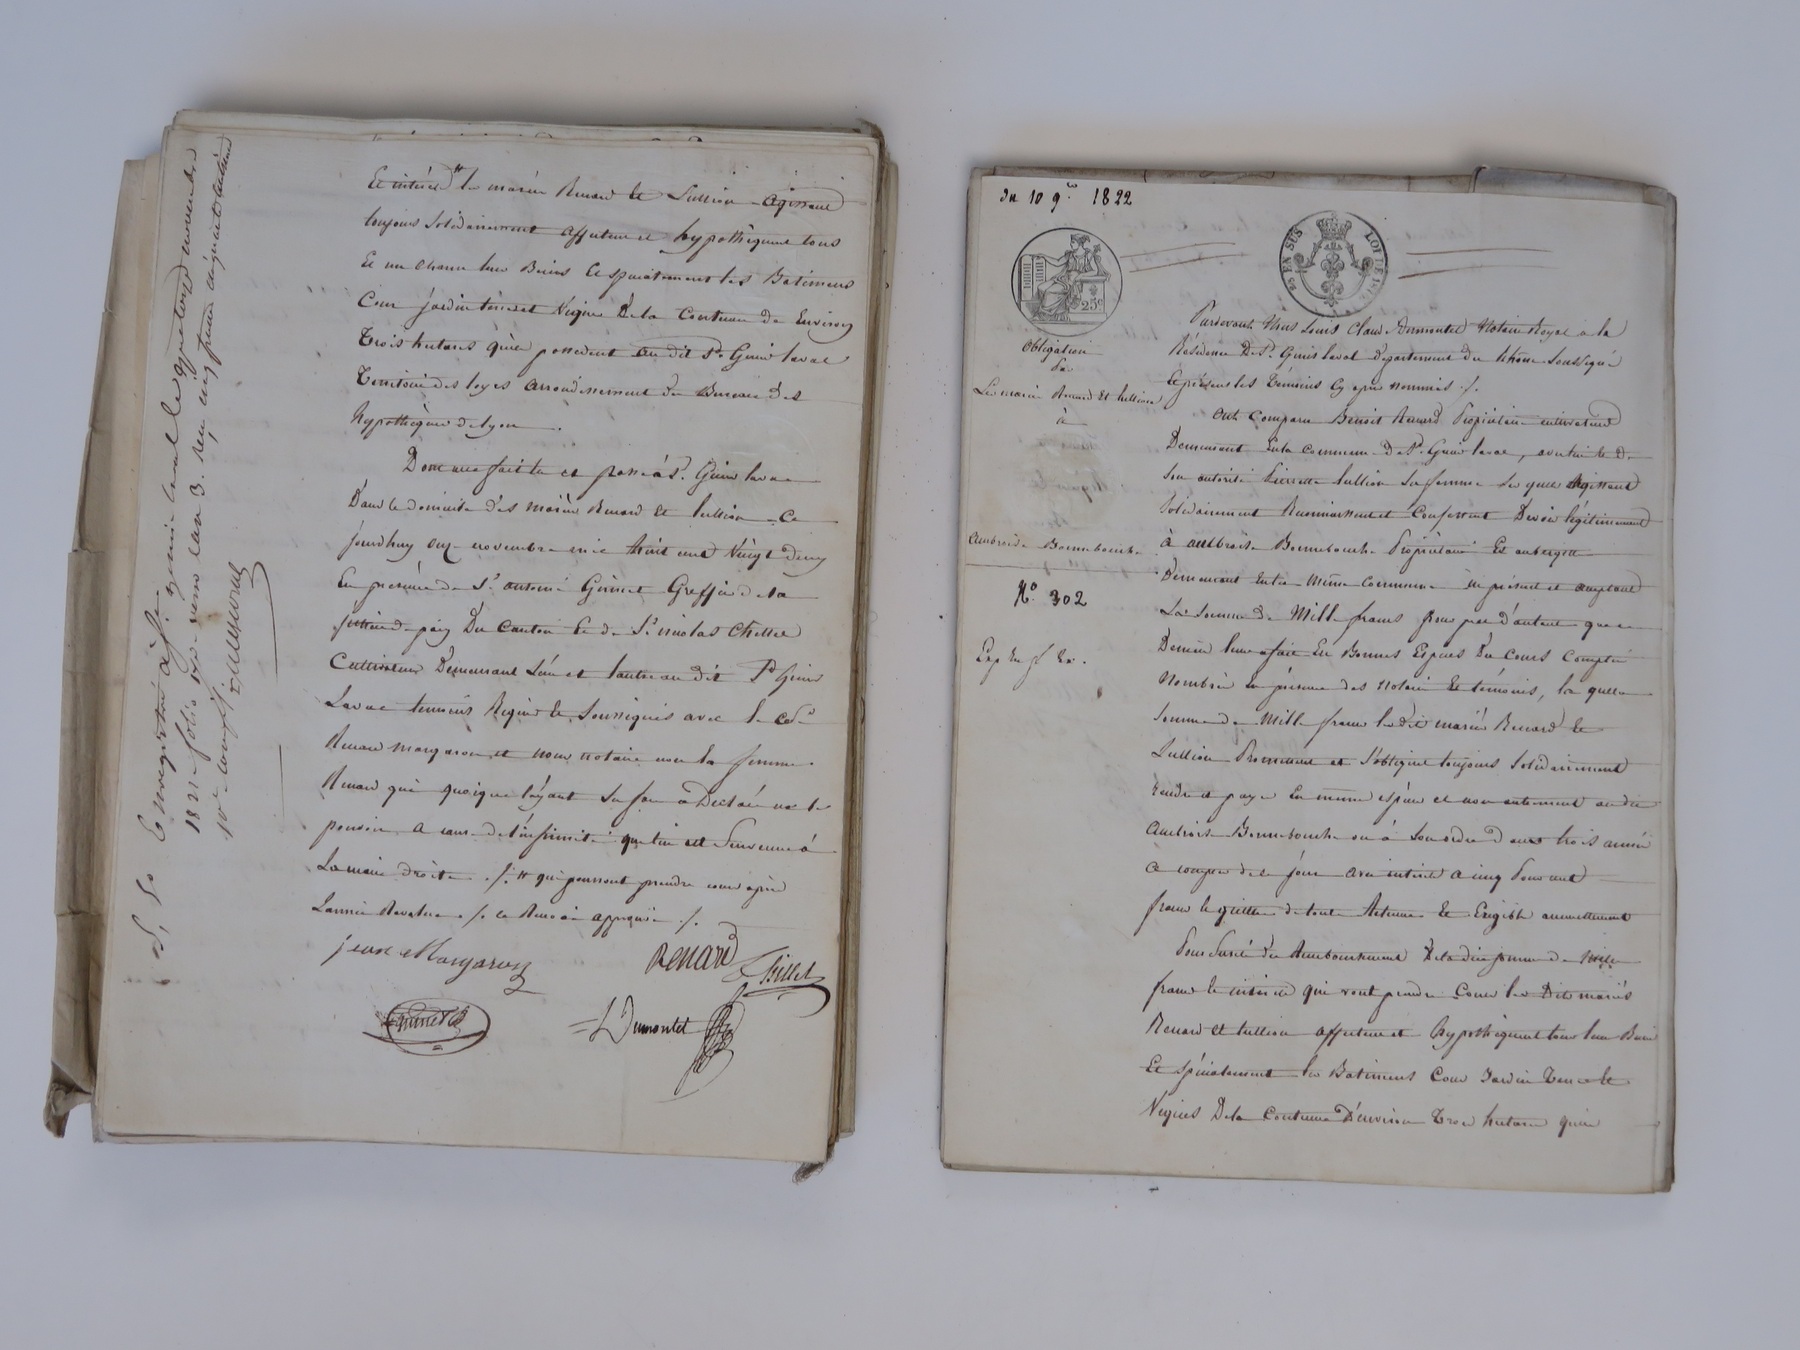 Et intérêt les mariés Renard et Lullion agissant
toujours solidairement affectent et hypothèquent tous
Et un chacun leurs Biens et spécialement les Batimens
Cour jardin terres et Vignes De la Contenue de Environ
Trois hectares qu'ils possèdent au dit St. Genis laval
Territoire des loyes arrondissement du Bureau des
hypothèques de lyon .
Dont acte fait lu et passé à St. Genis laval
Dans le domicile des mariés Renard et Lullion - Ce
jourdhuy onze novembre mil huit cent Vingt deux
En présence de Sr. antoine Greffier de la
justice de paix Du Canton et de Sr. nicolas
Cultivateur Demeurant L'un et l'autre au dit St. Genis
Laval temoins Requis et Soussignés avec le
Renard margaron et nous notaire non la femme
Renard qui quoique sa déclaré ne le
pouvoir a cause de l'infirmité qui lui est survenue à
La main droite ./. # qui pourront prendre cour après
Lannée ./. ce Renvoi approuvé ./.
jean Margaron
Renard
Thillet
LDumontet
Enregistré à St. genis laval le quatorze novembre
1822 folio 172 verso case 3. Reçu cinq francs cinquante centimes
10me compris
du 10 9.bre 1822
25 EN SUS LOI DE 1816
25c
Obligation
Les mariés Renard et Lullion
à
ambroise Bonnebouche
No. 302
Pardevant Mres Louis Claude Dumontet Notaire Royal à la
Résidence De St. Genis laval Département du Rhône Soussigné
Et présens les Témoins Cy après nommés ./.
Ont Comparu Benoit Renard Propriétaire cultivateur
Demeurant En la Commune De St. Genis laval, et de
Son autorité Pierrette Lullion Sa femme Les quels Agissant
Solidairement Reconnoissent et Confessent Devoir légitimement
à ambroise Bonnebouche Propriétaire Et aubergiste
Demeurant En la Même Commune ici présent et acceptant
La Somme de Mille francs pour prêt d'autant que ce
Dernier leur a fait En Bonnes Espèces Du Cours Comptés
Nombrés En présence des Notaire Et témoins, la quelle
Somme de Mille francs les dits mariés Renard et
Lullion Promettent et S'obligent toujours Solidairement
rendre et payer En même espèce et non autrement au dit
Ambroise Bonnebouche ou à Son ordre Dans trois années
a compter de ce jour avec intérêt a cinq Pour cent
francs quitte de toute Retenue Et Exigible annuellement
Pour Sureté du Remboursement De la dite somme de Mille
francs et intérêt qui vont prendre Cours les Dits mariés
Renard et Lullion affectent et hypothèquent tous leurs Biens
Et Spécialement les Batimens Cour Jardin Terres et
Vignes De la Contenue D'environ Trois hectares qu'ils